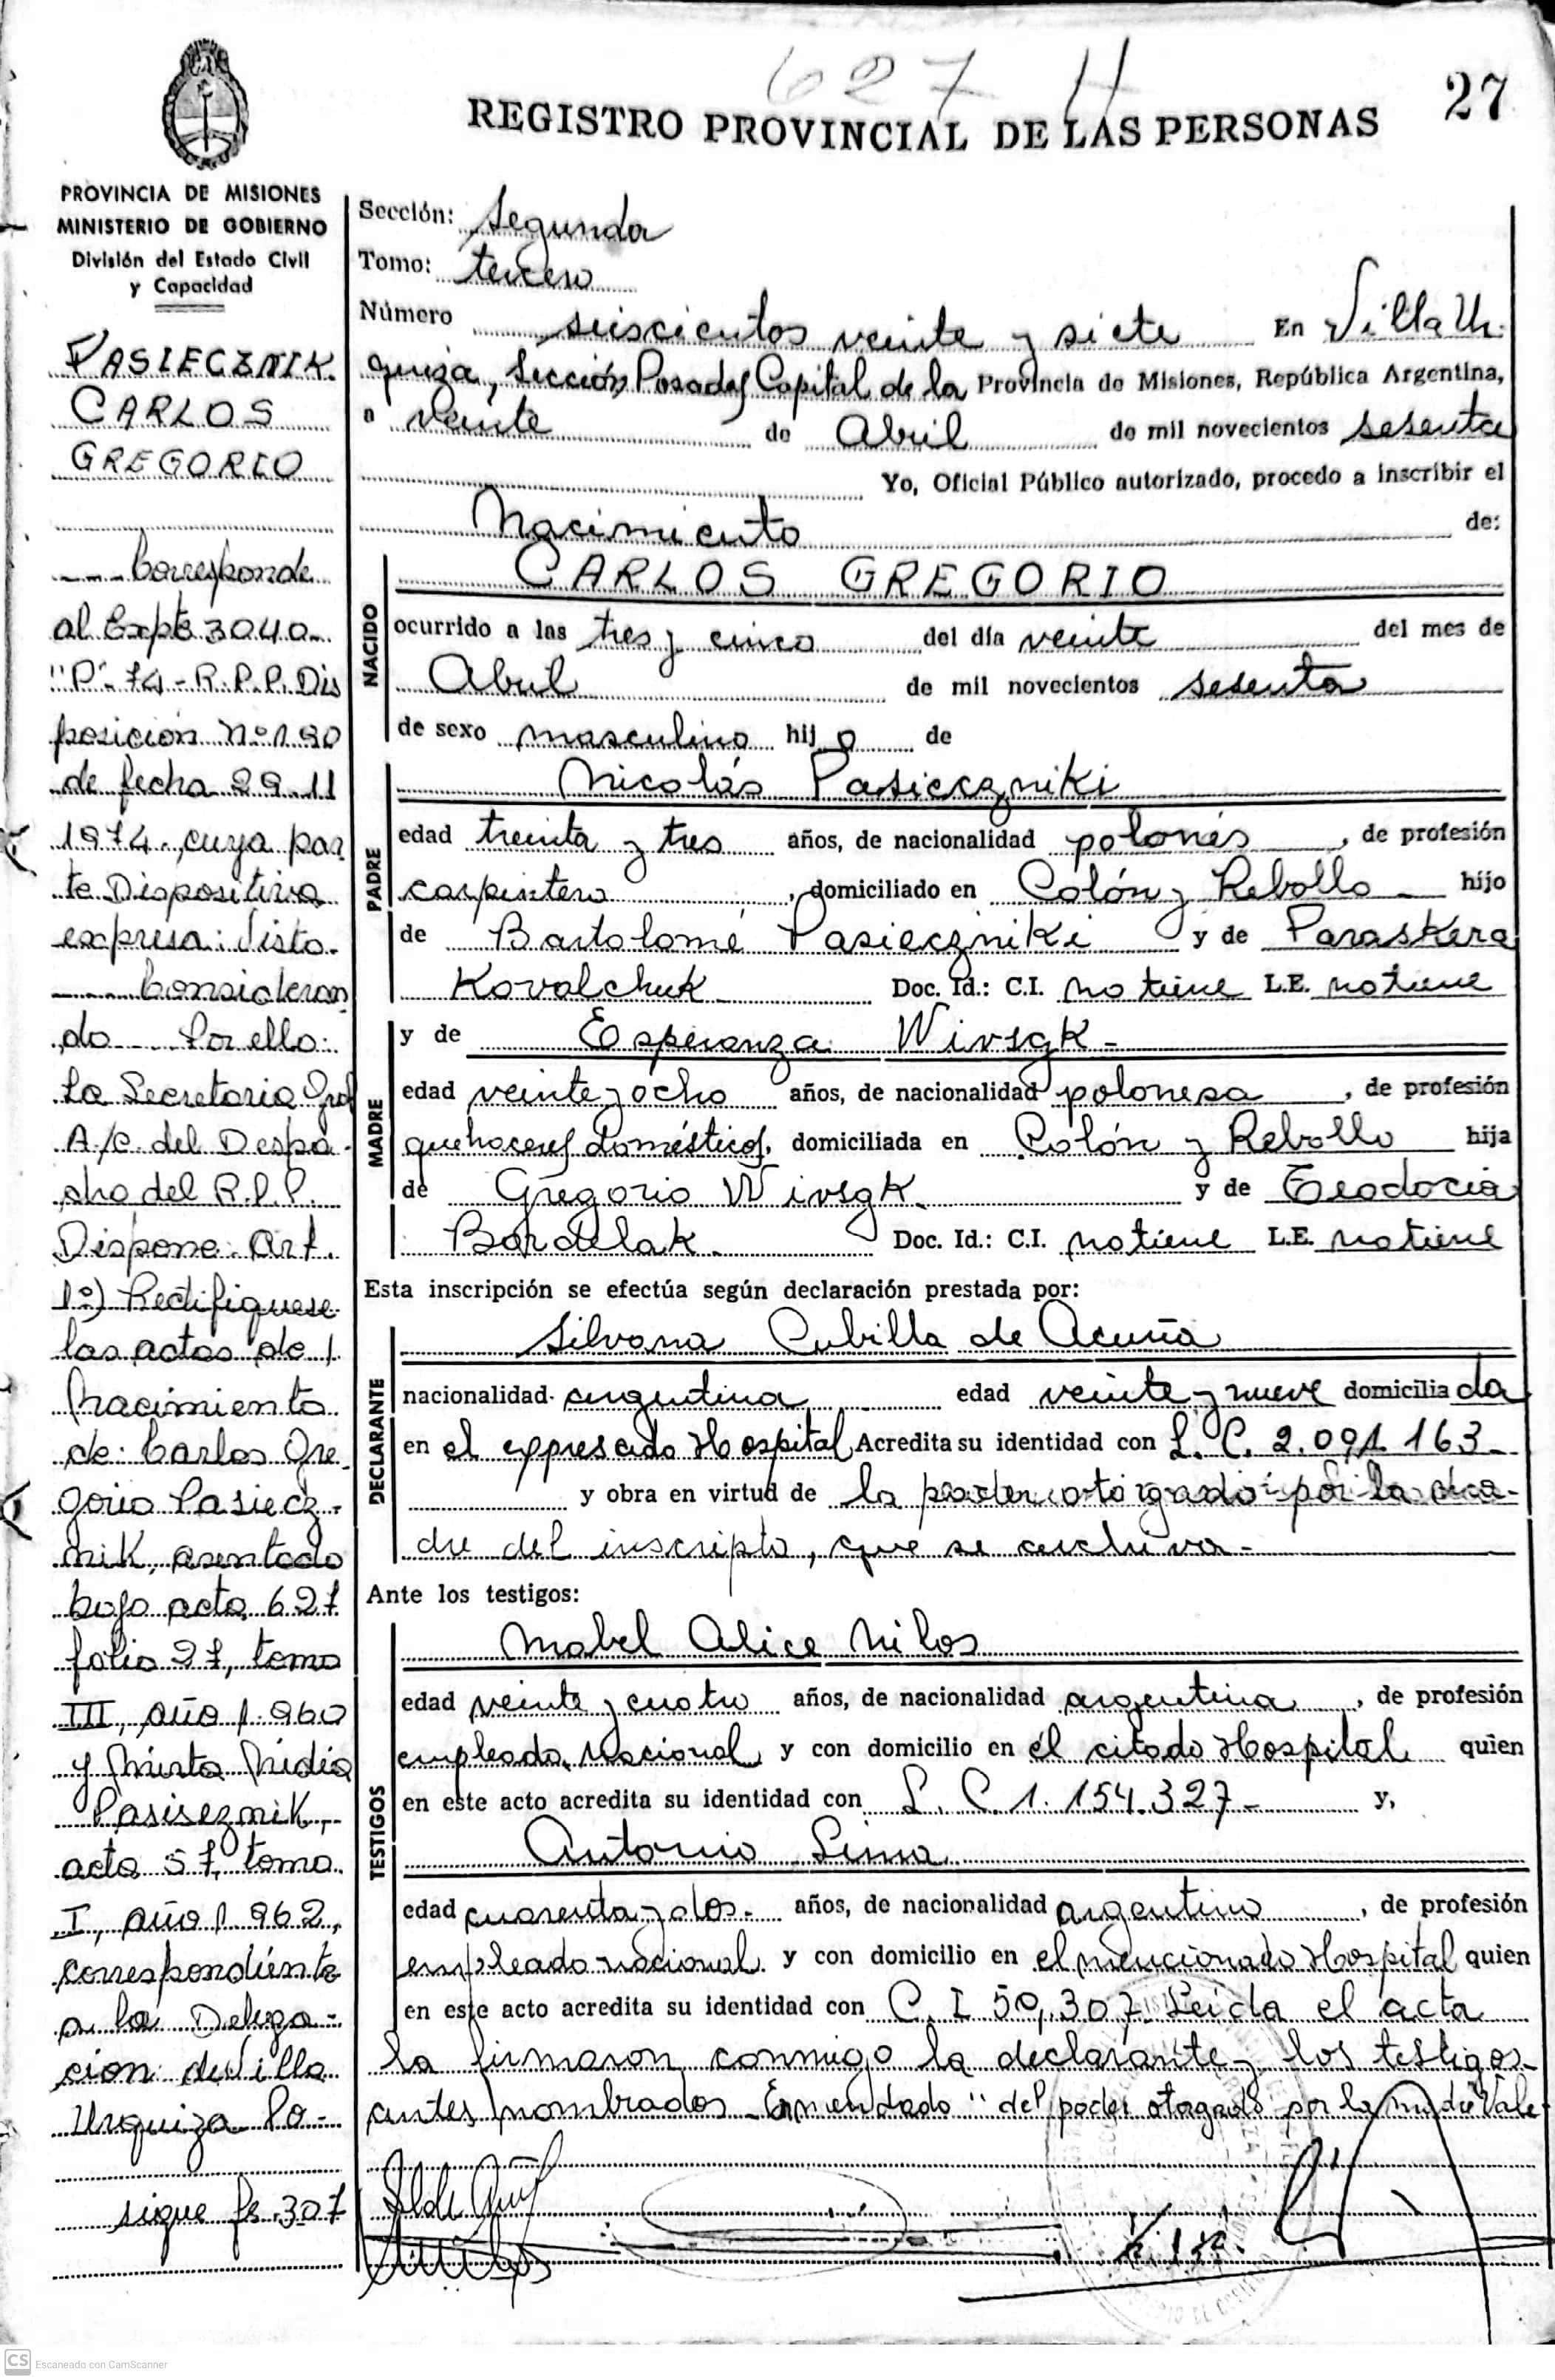 627 H
27
REGISTRO PROVINCIAL DE LAS PERSONAS
PROVINCIA DE MISIONES
MINISTERIO DE GOBIERNO
División del Estado Civil
y Capacidad
PASIECZNIK.
CARLOS
GREGORIO
Corresponde
al Expte 3040
"P"-74-R.P.P. Dis
posición Nº 190
de fecha 29.11
1974., cuya par
te Dispositiva
expresa: Visto.
Consideran
do Por ello:
La Secretaria Gral
A/C. del Despa-
cho del R.P.P.
Dispone: Art.
1º) Rectifiquese
las actas de
Nacimiento
de: Carlos Gre
gorio Pasiecz-
nik, asentado
bajo acta 627
folio 27, tomo
III, año 1.960
y Mirta Nidia
Pasiseznik,
acta 57, tomo
I, año 1.962,
correspondiente
a la Delega-
ción de Villa
Urquiza Po-
sigue fs. 307
Sección: Segunda
Tomo: tercero
Número seiscientos veinte y siete En Villa Ur-
quiza, Sección Posadas Capital de la Provincia de Misiones, República Argentina,
a veinte de Abril de mil novecientos sesenta
Yo, Oficial Público autorizado, procedo a inscribir el
Nacimiento de:
NACIDO
CARLOS GREGORIO
ocurrido a las tres y cinco del día veinte del mes de
Abril de mil novecientos sesenta
de sexo masculino hijo de
PADRE
Nicolás Pasieczniki
edad treinta y tres años, de nacionalidad polonés, de profesión
carpintero, domiciliado en Colón y Rebollo hijo
de Bartolomé Pasieczniki y de Paraskera
Kovalchuk Doc. Id.: C.I. no tiene L.E. no tiene
MADRE
y de Esperanza Wivsgk-
edad veinte y ocho años, de nacionalidad polonesa, de profesión
quehaceres domésticos, domiciliada en Colón y Rebollo hija
de Gregorio Wivsgk y de Teodocia
Bordelak Doc. Id.: C.I. no tiene L.E. no tiene
Esta inscripción se efectúa según declaración prestada por:
DECLARANTE
Silvana Cubilla de Acuña
nacionalidad argentina edad veinte y nueve domiciliada
en el expresado Hospital Acredita su identidad con L.C. 2.091.163-
y obra en virtud de la poder otorgado por la ma-
dre del inscripto, que se archiva-
Ante los testigos:
TESTIGOS
Mabel Alice Milos
edad veinte y cuatro años, de nacionalidad argentina, de profesión
empleada nacional y con domicilio en el citado Hospital quien
en este acto acredita su identidad con L.C. 1.154.327- y,
Antonio Lima
edad cuarenta y dos- años, de nacionalidad argentino, de profesión
empleado nacional y con domicilio en el mencionado Hospital quien
en este acto acredita su identidad con C.I 50,307. Leída el acta
la firmaron conmigo la declarante y los testigos
antes nombrados Enmendado "del poder otagado por la madre Vale-
CS Escaneado con CamScanner